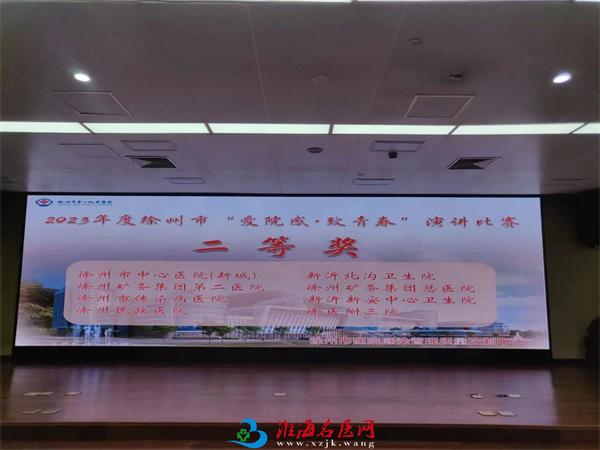 徐州市第一人民医院
2023年度徐州市“爱院感·致青春”演讲比赛
二等奖
徐州市中心医院(新城) 新沂北沟卫生院
徐州矿务集团第二医院 徐州矿务集团总医院
徐州市传染病医院 新沂新安中心卫生院
徐州民政医院 徐医附三院
淮海名医网
www.xzjk.wang